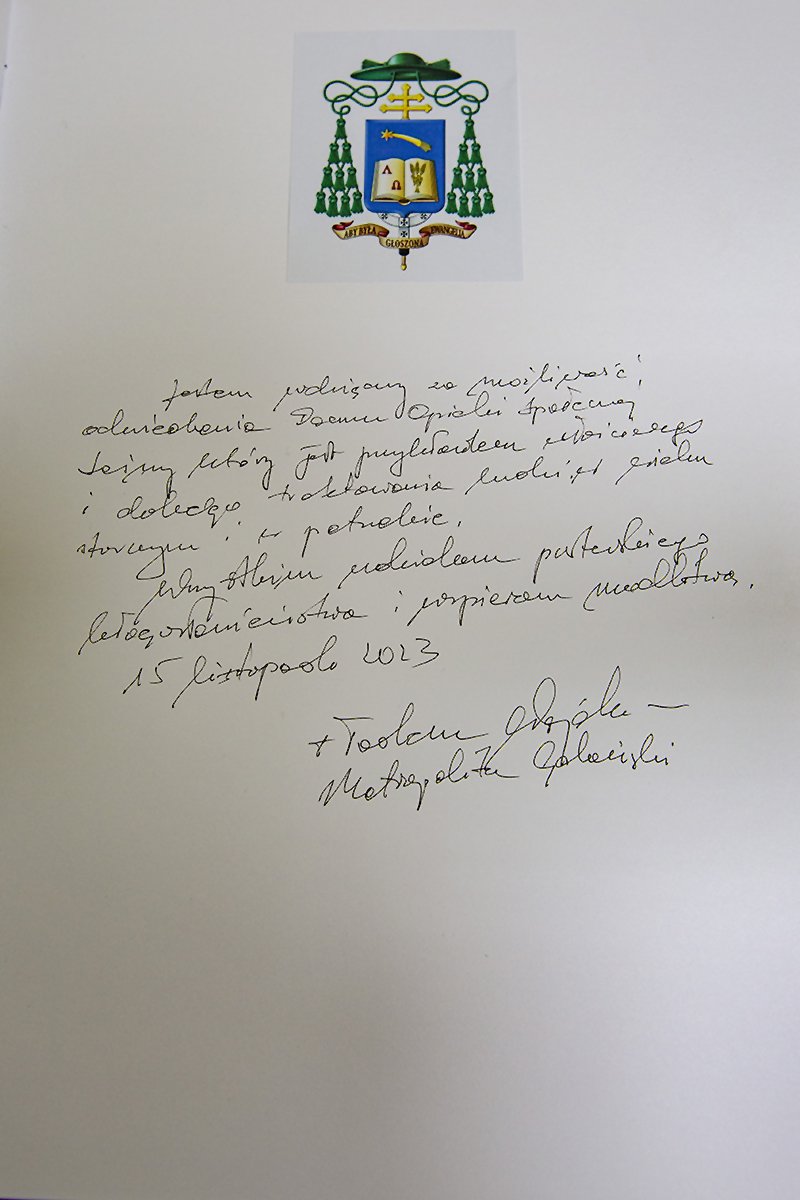 ABY BYŁA GŁOSZONA EWANGELIA
Α
Ω
Jestem wdzięczny za możliwość
odwiedzenia Domu Opieki Społecznej
który jest przykładem właściwego
i dobrego traktowania ludzi w wieku
starczym i w potrzebie.
Wszystkim udzielam pasterskiego
błogosławieństwa i wspieram modlitwą.
15 listopada 2023
+ Tadeusz Wojda
Metropolita Gdański